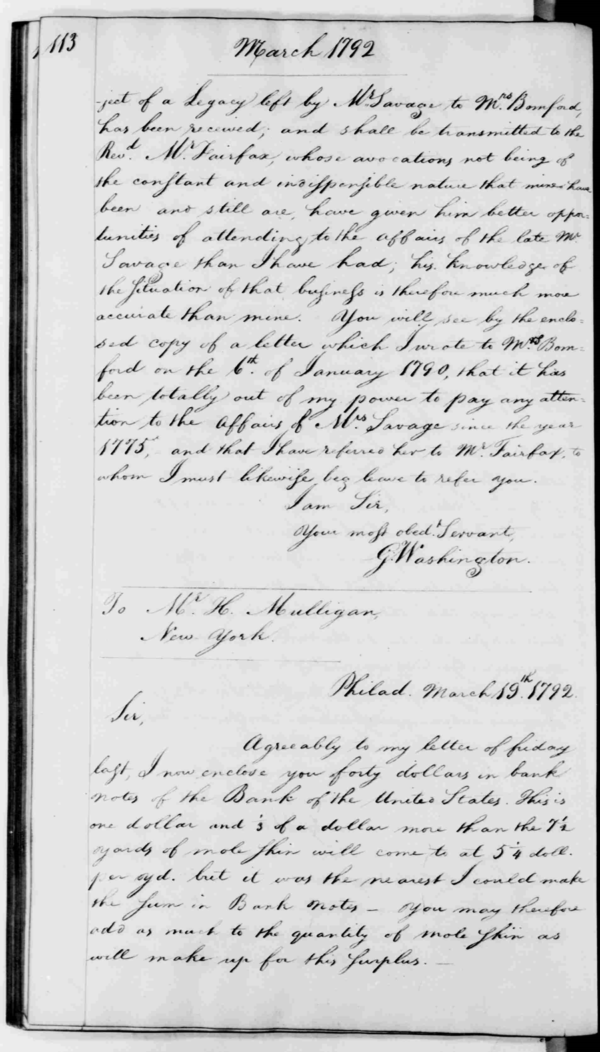 113
March 1792
-ject of a Legacy left by Mr. Savage to Mrs. Bomford,
has been received; and shall be transmitted to the
Revd. Mr. Fairfax, whose avocations not being of
the constant and indispensible nature that mine have
been and still are, have given him better oppor-
tunities of attending to the affairs of the late Mr
Savage than I have had; his knowledge of
the situation of that business is therefore much more
accurate than mine. You will see by the enclo-
sed copy of a letter which I wrote to Mrs. Bom-
ford on the 6th. of January 1790, that it has
been totally out of my power to pay any atten-
tion to the affairs of Mrs Savage since the year
1775, and that I have referred her to Mr. Fairfax, to
whom I must likewise beg leave to refer you.
I am Sir,
Your most obedt. Servant,
G. Washington.
To Mr. H. Mulligan,
New York.
Philad. March 19th. 1792.
Sir,
Agreeably to my letter of friday
last, I now enclose you forty dollars in bank
notes of the Bank of the United States. This is
one dollar and of a dollar more than the 7½
yards of mole skin will come to at 5¼ doll.
per yd. but it was the nearest I could make
the sum in Bank Notes — You may therefore
add as much to the quantity of mole skin as
will make up for this surplus. —